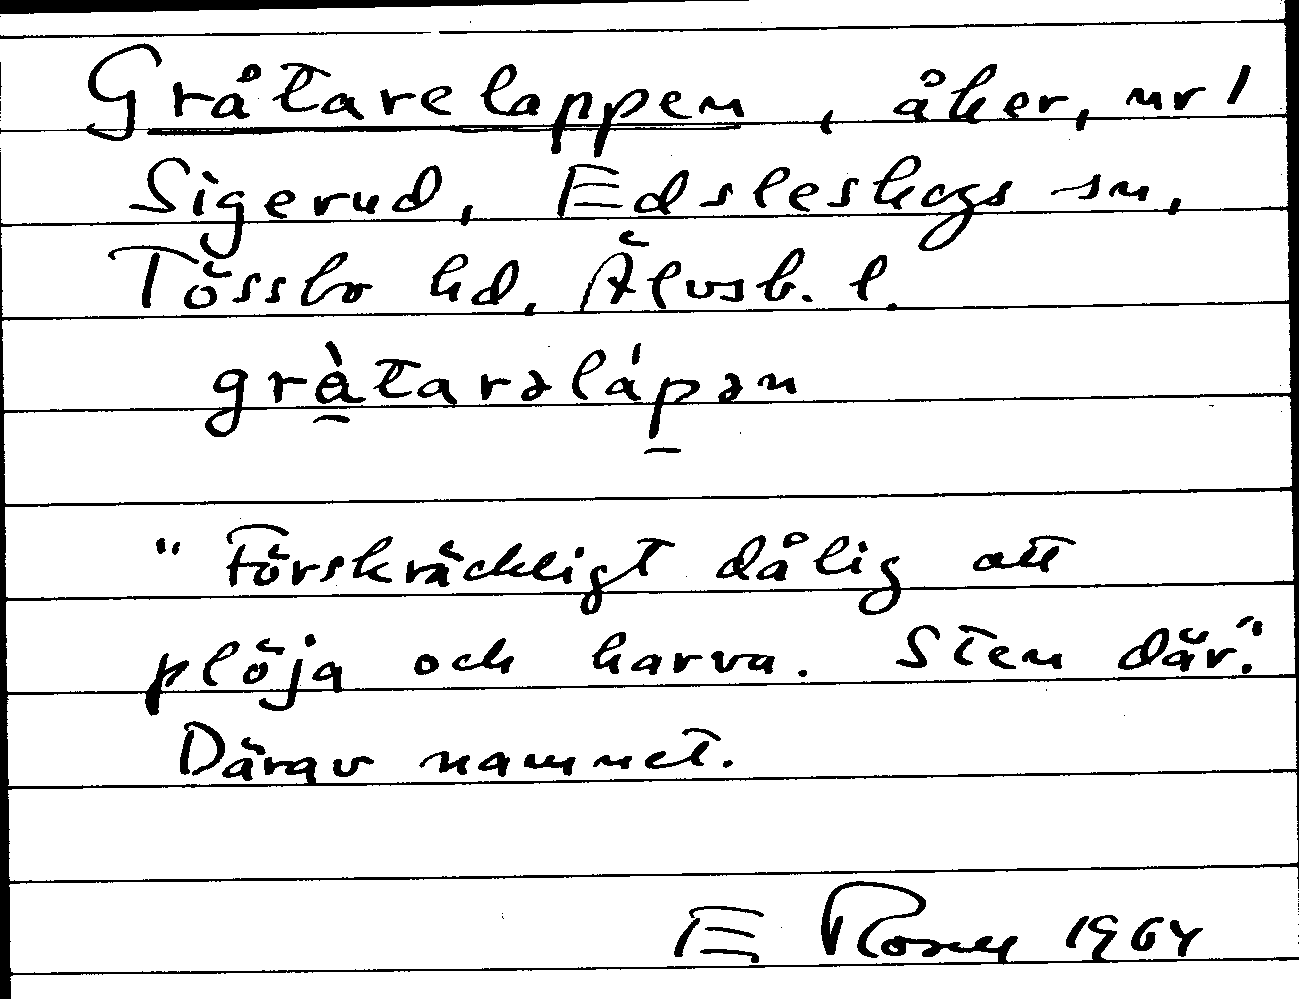 Gråtarelappen, åker, nr 1
Sigerud, Edsleskogs sn,
Tössbo hd, Älvsb. l.
gràtarəlápən
"Förskräckligt dålig att
plöja och harva. Sten där".
Därav namnet.
E 1964